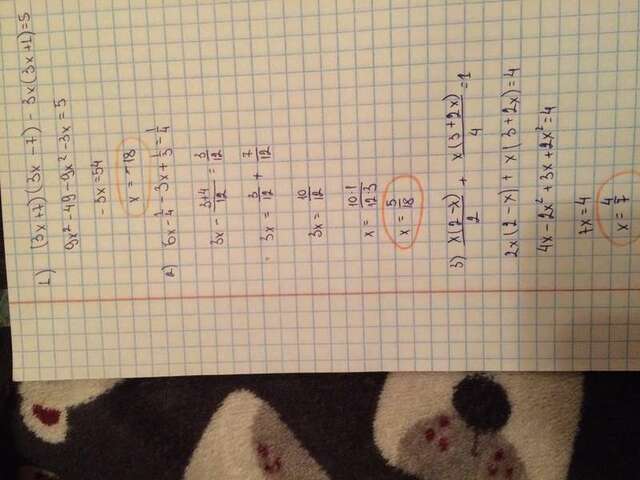 1) (3x+7)(3x-7) - 3x(3x+1)=5
9x² -49 -9x² -3x = 5
-3x = 54
x = -18
2) 6x - 1/4 - 3x + 1/3 = 1/4
3x - (3+4)/12 = 3/12
3x = 3/12 + 7/12
3x = 10/12
x = (10·1)/(12·3)
x = 5/18
3) x(2-x)/2 + x(3+2x)/4 = 1
2x(2-x) + x(3+2x)=4
4x - 2x² + 3x + 2x² = 4
7x = 4
x = 4/7